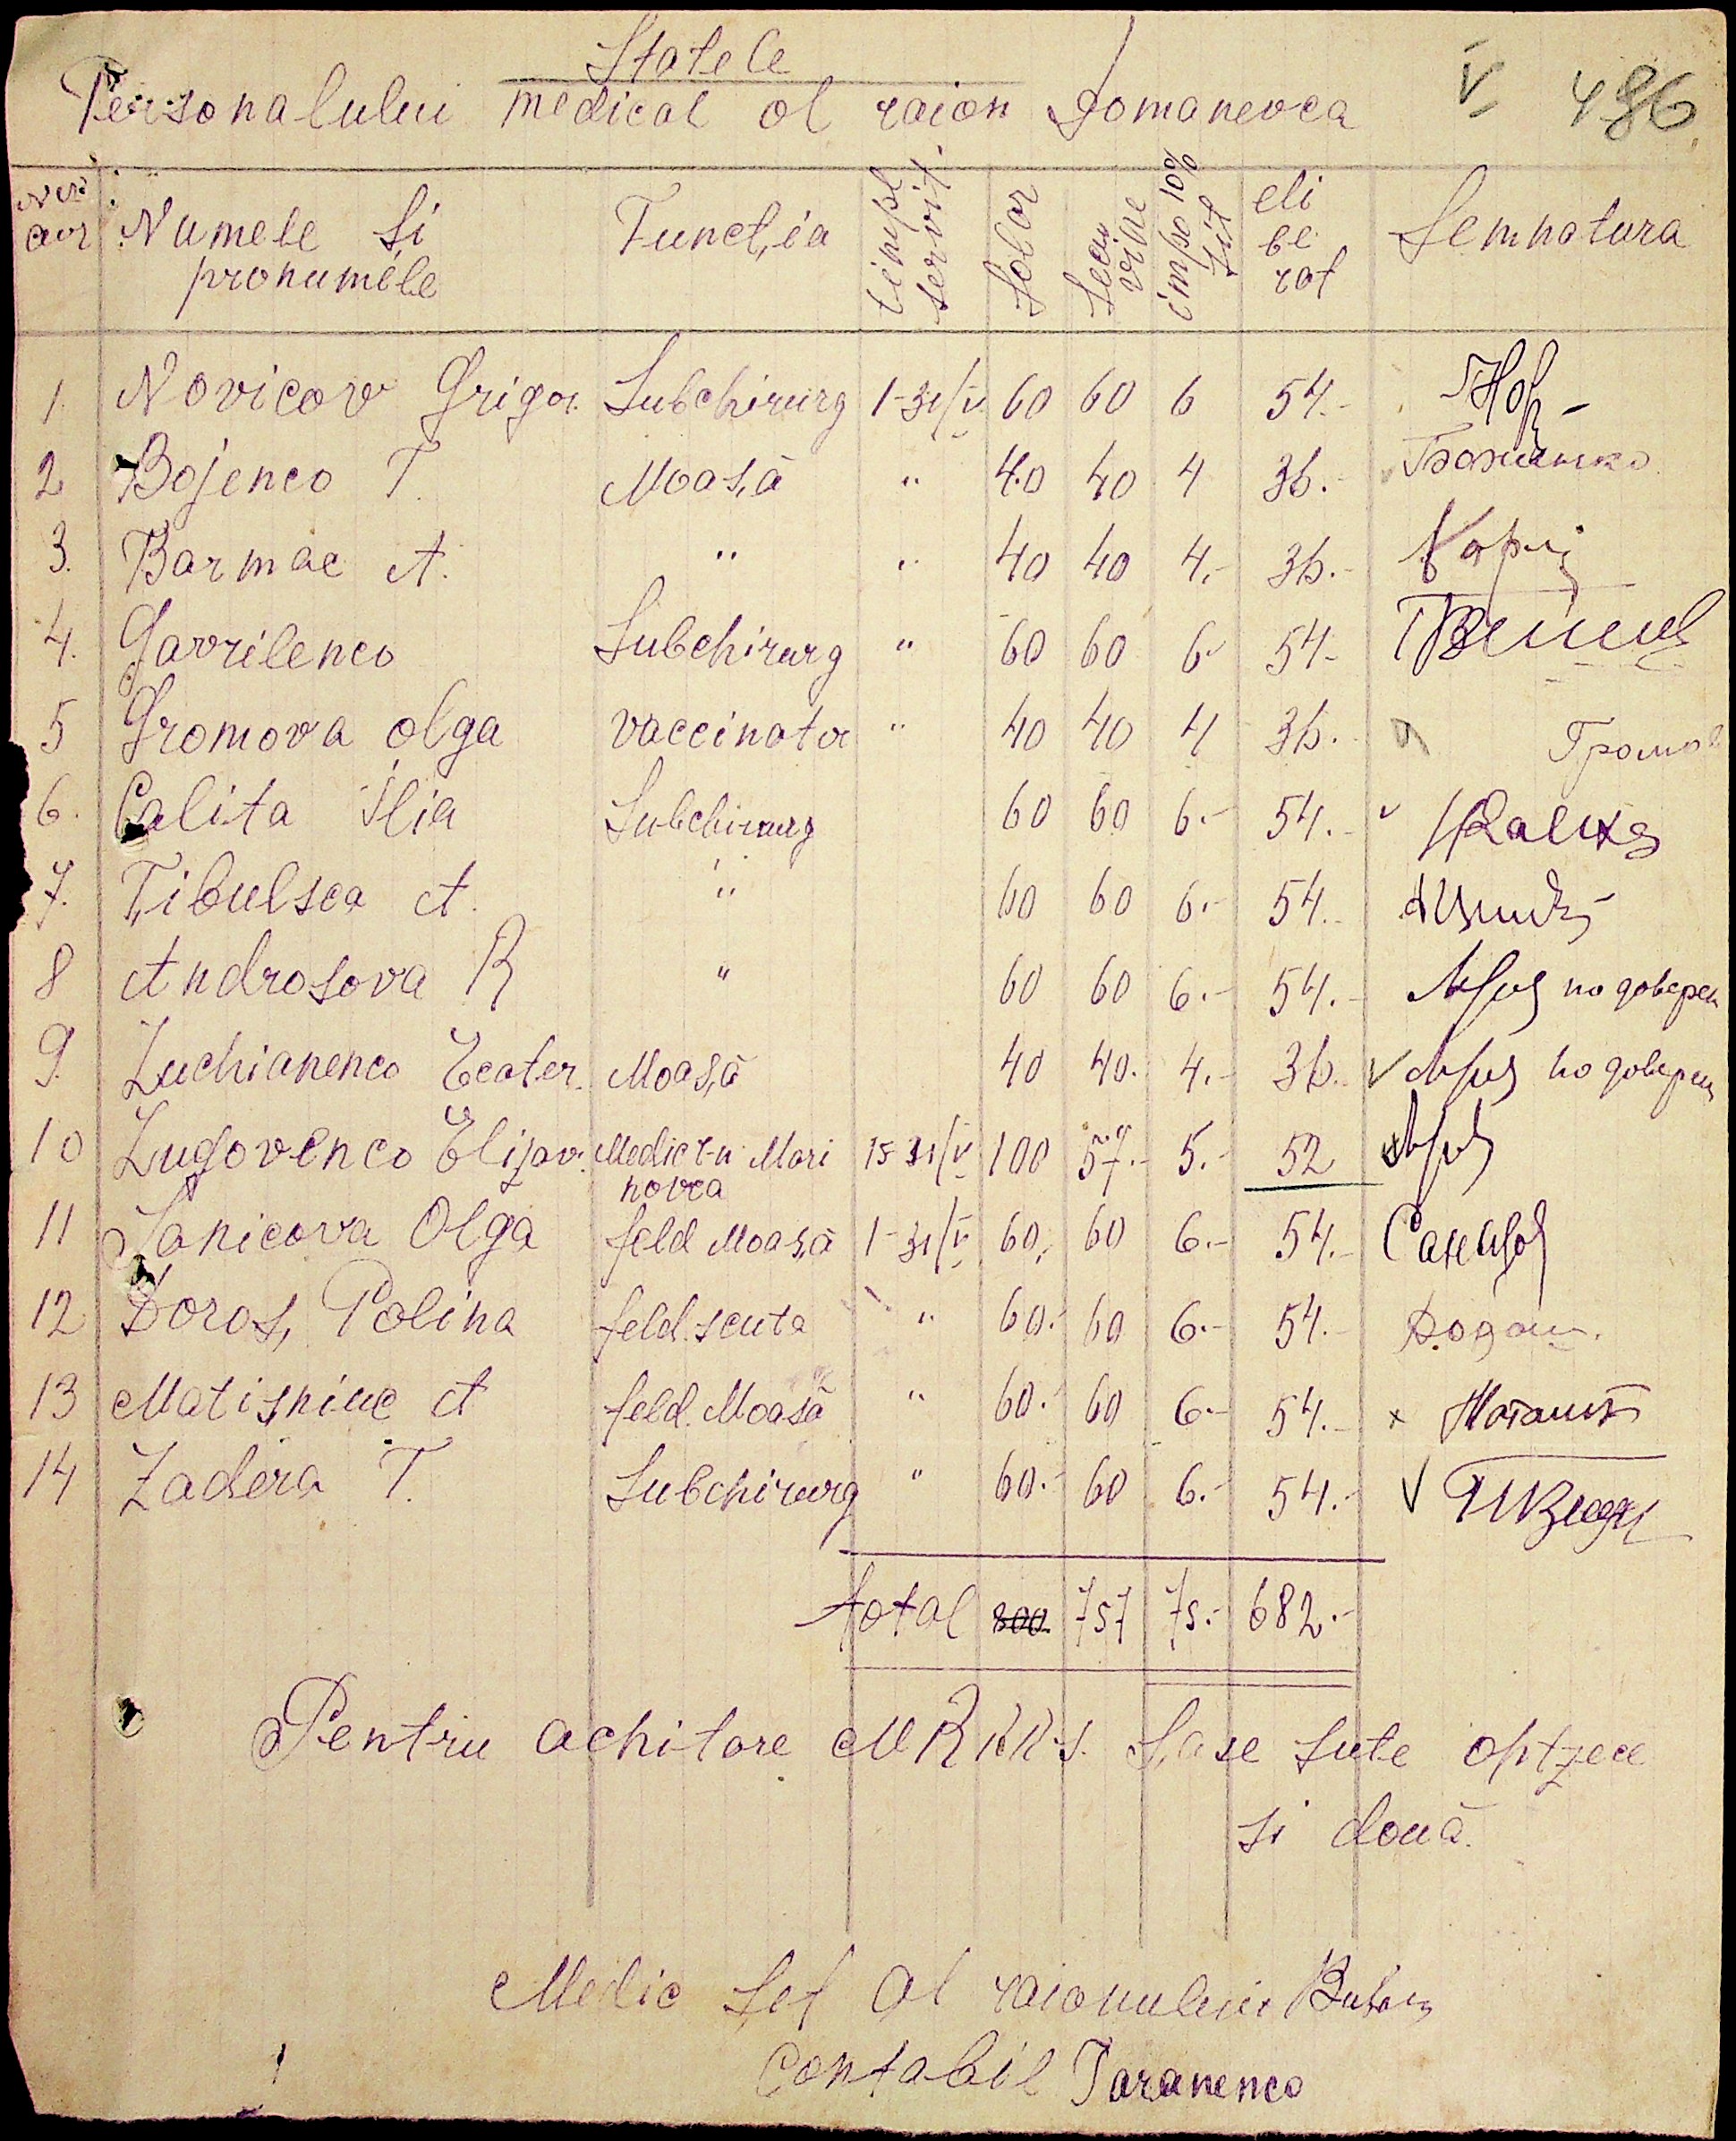 Statele
Personalului medical al raion Domanevca V 486
№№ Numele și pronumele Funcția timpl servit. Salar Se cuvine impo 10% zit elibe rat Semnatura
1. Novicov Grigor. Subchirurg 1-31/V 60 60 6 54.-
2 Bojenco T. Moașă " 40 40 4 36.- Боженко
3. Barmac A. " " 40 40 4.- 36.-
4. Gavrilenco Subchirurg " 60 60 6 54-
5 Gromova Olga vaccinator " 40 40 4 36.- Громов
6. Calita Ilia Subchirurg 60 60 6.- 54.-
7. Țibulsca A. " 60 60 6.- 54.-
8 Androsova R " 60 60 6.- 54.- по доверен
9. Luchianenco Ecater. Moașă 40 40. 4.- 36.- по доверен
10 Lugovenco Elizav. Medic t-u Mari novca 15-31/V 100 57.- 5.- 52
11 Sanicova Olga feld Moașă 1-31/V 60. 60 6.- 54.-
12 Doroș, Polina feld. scuta " 60.- 60 6.- 54.-
13 Matișniuc A feld. Moașă " 60.- 60 6.- 54.-
14 Zadera T. Subchirurg " 60.- 60 6.- 54.-
total 800 757 75.- 682.-
Pentru achitare MRKKS. Șase sute optzece
si două.
Medic Șef al raionului
Contabil Taranenco